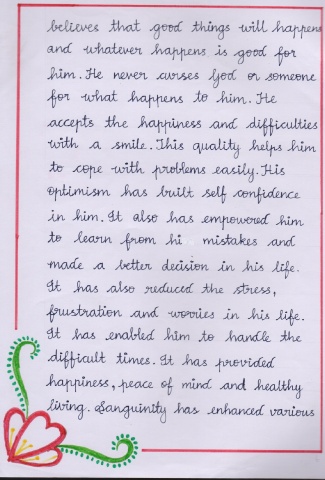 believes that good things will happen
and whatever happens is good for
him. He never curses God or someone
for what happens to him. He
accepts the happiness and difficulties
with a smile. This quality helps him
to cope with problems easily. His
optimism has built self confidence
in him. It also has empowered him
to learn from hi mistakes and
made a better decision in his life.
It has also reduced the stress,
frustration and worries in his life.
It has enabled him to handle the
difficult times. It has provided
happiness, peace of mind and healthy
living. Sanguinity has enhanced various